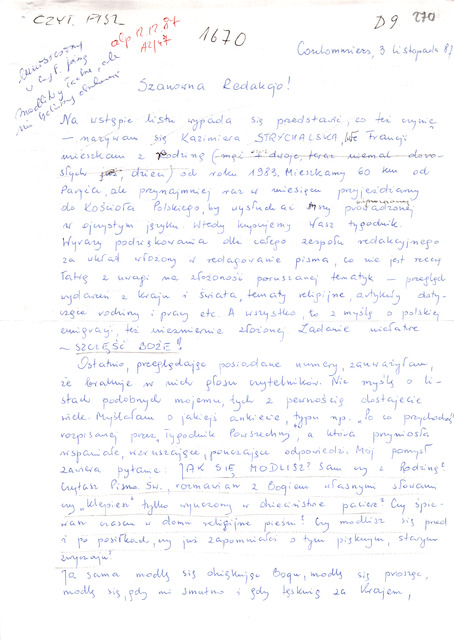 CZYT. FISZ
alp 12.12.87
A2/47
1670
D9 270
Coulommiers, 3 listopada 87
Szanowna Redakcjo!
Na wstępie listu wypada się przedstawić, co też czynię
– nazywam się Kazimiera STRYCHALSKA, We Francji
mieszkam z Rodziną (mąż i dwoje, teraz niemal doro-
słych już, dzieci) od roku 1983. Mieszkamy 60 km od
Paryża, ale przynajmniej raz w miesiącu przyjeżdżamy
do Kościoła Polskiego, by wysłuchać Mszy
w ojczystym języku. Wtedy kupujemy Wasz tygodnik.
Wyrazy podziękowania dla całego zespołu redakcyjnego
za wkład włożony w redagowanie pisma, co nie jest rzeczą
łatwą z uwagi na złożoność poruszanej tematyki – przegląd
wydarzeń z kraju i świata, tematy religijne, artykuły doty-
czące rodziny i pracy etc. A wszystko, to z myślą o polskiej
emigracji, też niezmiernie złożonej. Zadanie niełatwe
– SZCZĘŚĆ BOŻE!
Ostatnio, przeglądając posiadane numery, zauważyłam,
że brakuje w nich głosu czytelników. Nie myślę o li-
stach podobnych mojemu, tych z pewnością dostajecie
wiele. Myślałam o jakiejś ankiecie, typu np. „Po co przychodzę"
rozpisanej przez Tygodnik Powszechny, a która przyniosła
wspaniałe, wzruszające, pouczające odpowiedzi. Mój pomysł
zawiera pytanie: JAK SIĘ MODLISZ? Sam czy z Rodziną?
Czytasz Pismo Św., rozmawiasz z Bogiem własnymi słowami
czy „klepiesz" tylko wyuczony w dzieciństwie pacierz? Czy śpie-
wasz czasem w domu religijne pieśni? Czy modlisz się przed
i po posiłkach, czy już zapomniałeś o tym pięknym, starym
zwyczaju?
Ja sama modlę się dziękując Bogu, modlę się prosząc,
modlę się, gdy mi smutno i gdy tęsknię za Krajem,